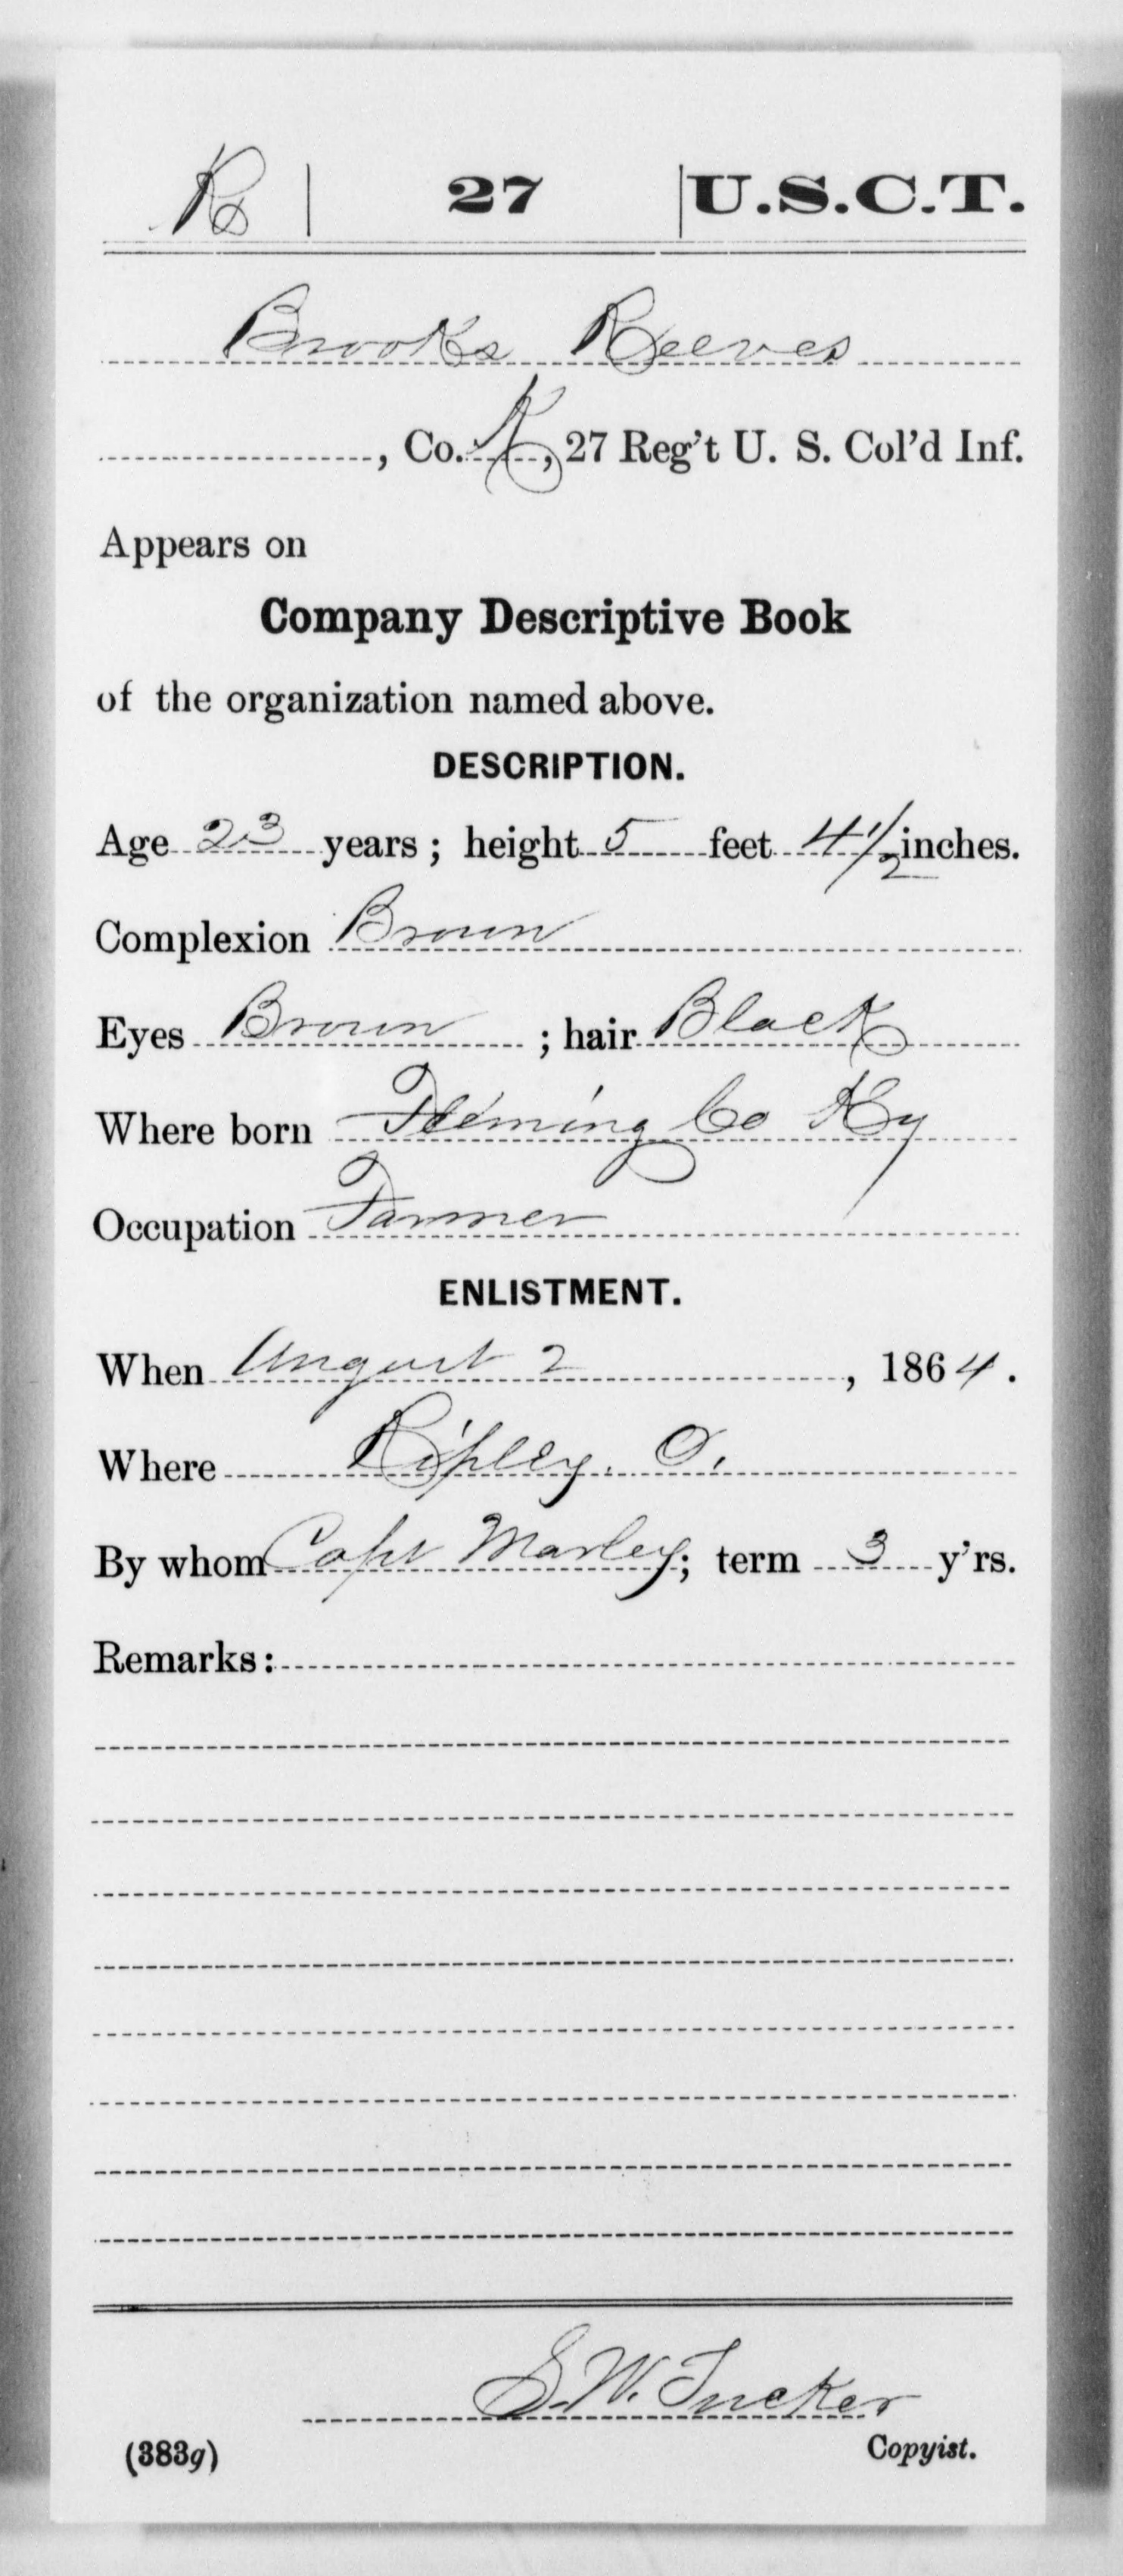 R | 27 | U.S.C.T.
Brooks Reeves
, Co. K, 27 Reg't U. S. Col'd Inf.
Appears on
Company Descriptive Book
of the organization named above.
DESCRIPTION.
Age 23 years; height 5 feet 4 1/2 inches.
Complexion Brown
Eyes Brown; hair Black
Where born Fleming Co Ky
Occupation Farmer
ENLISTMENT.
When August 2, 1864.
Where Ripley. O.
By whom Capt Marley; term 3 y'rs.
Remarks:
S. W. Tucker
(383g) Copyist.